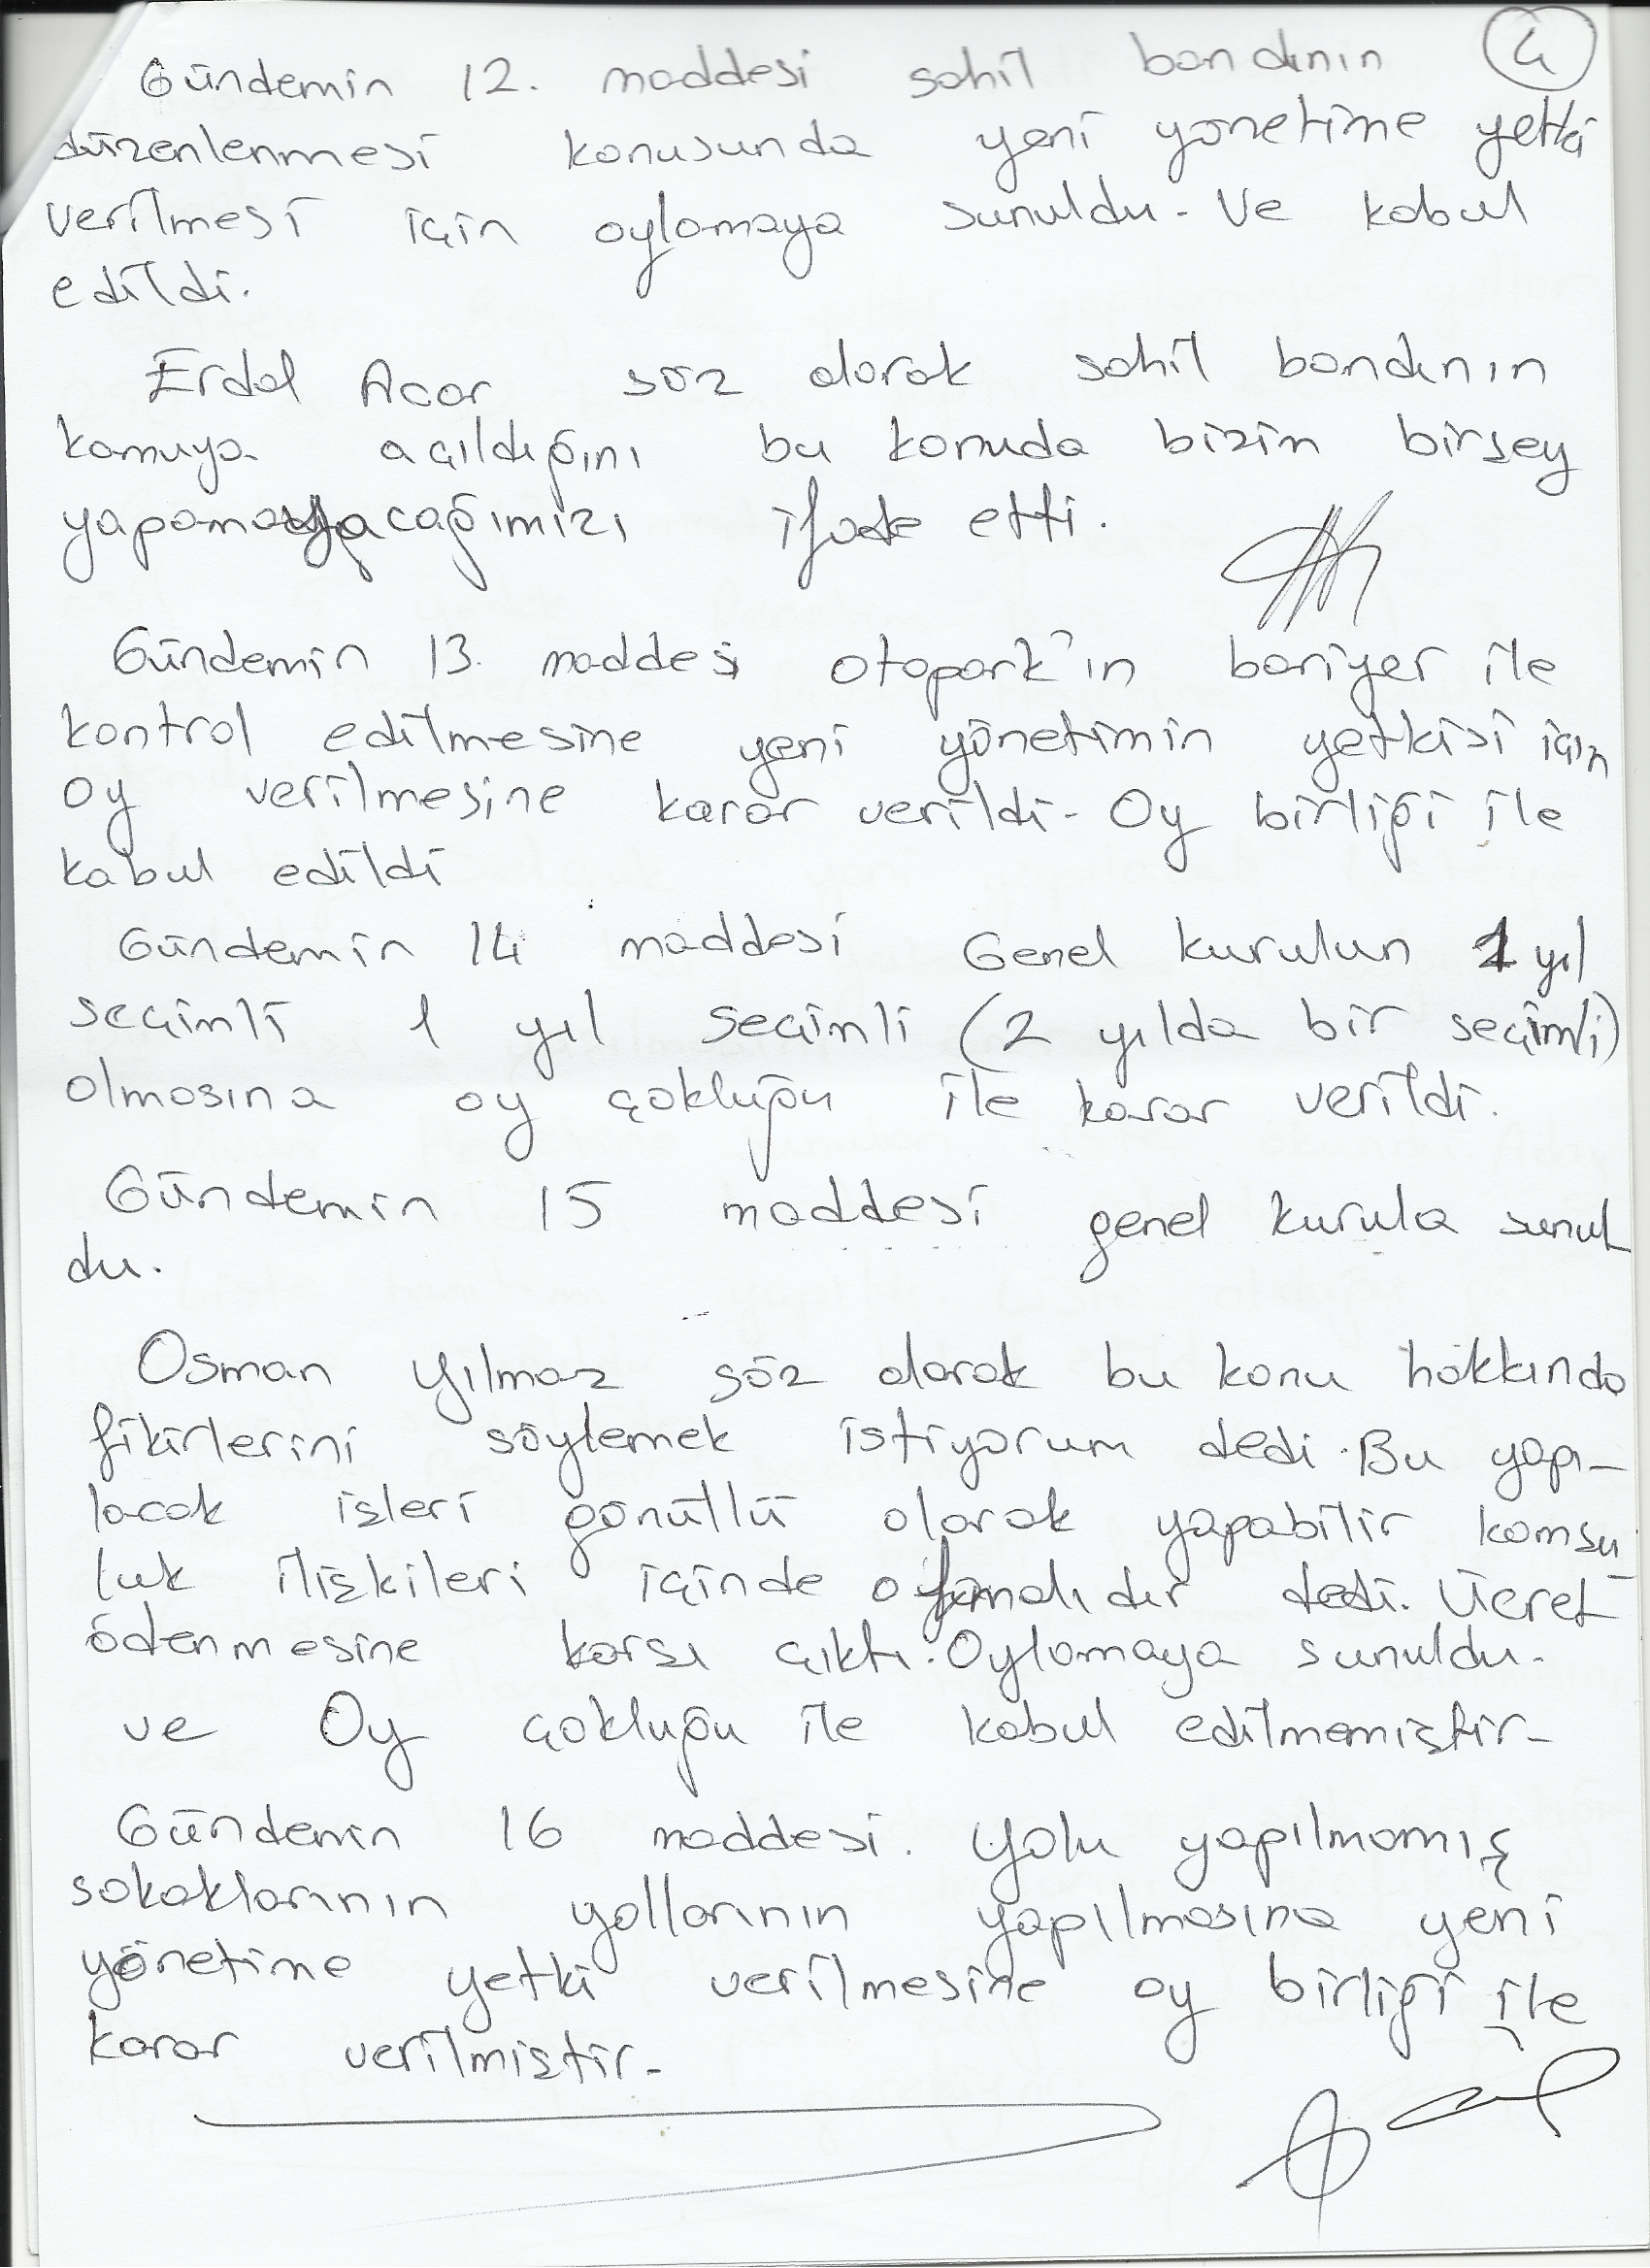 4
Gündemin 12. maddesi sahil bandının
düzenlenmesi konusunda yeni yönetime yetki
verilmesi için oylamaya sunuldu. Ve kabul
edildi.
Erdal Acar söz alarak sahil bandının
kamuya açıldığını bu konuda bizim birşey
yapamayacağımızı ifade etti.
Gündemin 13. maddesi otopark'ın bariyer ile
kontrol edilmesine yeni yönetimin yetkisi için
oy verilmesine karar verildi. Oy birliği ile
kabul edildi
Gündemin 14 maddesi Genel kurulun 1 yıl
seçimli 1 yıl seçimli (2 yılda bir seçimli)
olmasına oy çokluğu ile karar verildi.
Gündemin 15 maddesi genel kurula sunul
du.
Osman Yılmaz söz alarak bu konu hakkında
fikirlerini söylemek istiyorum dedi. Bu yapı-
lacak işleri gönüllü olarak yapabilir komşu
luk ilişkileri içinde olmalıdır dedi. Ücret
ödenmesine karşı çıktı. Oylamaya sunuldu.
ve Oy çokluğu ile kabul edilmemiştir.
Gündemin 16 maddesi. Yolu yapılmamış
sokaklarının yollarının yapılmasına yeni
yönetime yetki verilmesine oy birliği ile
karar verilmiştir.